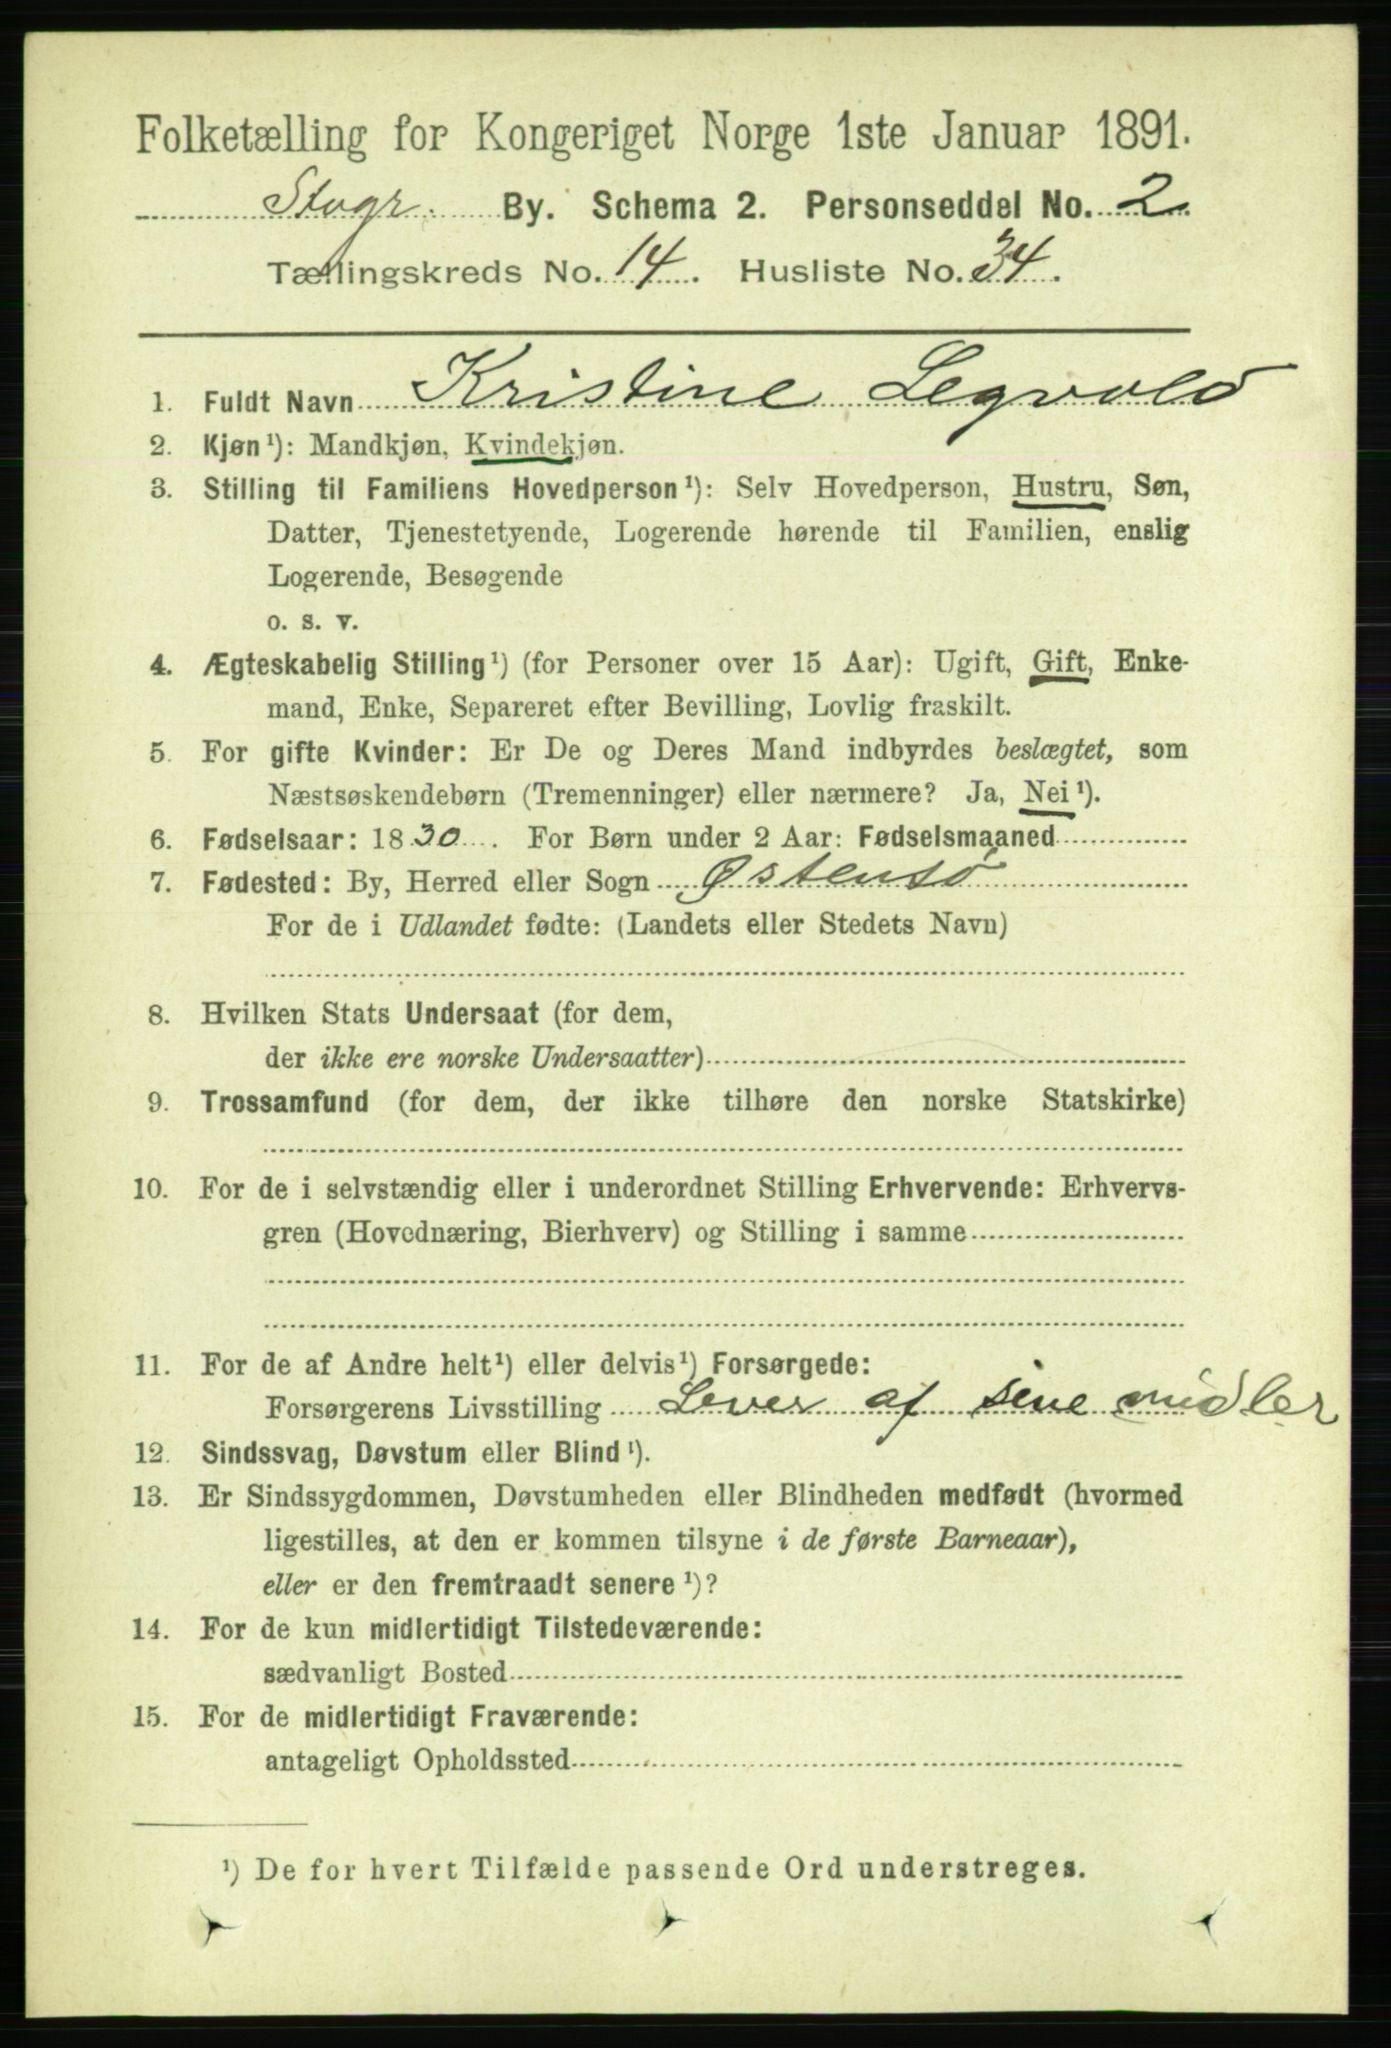 Folketælling for Kongeriget Norge 1ste Januar 1891.
Stvgr. By. Schema 2. Personseddel No. 2
Tællingskreds No. 14. Husliste No. 34.
1. Fuldt Navn Kristine Legvold
2. Kjøn¹): Mandkjøn, Kvindekjøn.
3. Stilling til Familiens Hovedperson¹): Selv Hovedperson, Hustru, Søn,
Datter, Tjenestetyende, Logerende hørende til Familien, enslig
Logerende, Besøgende
o. s. v.
4. Ægteskabelig Stilling¹) (for Personer over 15 Aar): Ugift, Gift, Enke-
mand, Enke, Separeret efter Bevilling, Lovlig fraskilt.
5. For gifte Kvinder: Er De og Deres Mand indbyrdes beslægtet, som
Næstsøskendebørn (Tremenninger) eller nærmere? Ja, Nei¹).
6. Fødselsaar: 1830. For Børn under 2 Aar: Fødselsmaaned
7. Fødested: By, Herred eller Sogn Østensø
For de i Udlandet fødte: (Landets eller Stedets Navn)
8. Hvilken Stats Undersaat (for dem,
der ikke ere norske Undersaatter)
9. Trossamfund (for dem, der ikke tilhøre den norske Statskirke)
10. For de i selvstændig eller i underordnet Stilling Erhvervende: Erhvervs-
gren (Hovednæring, Bierhverv) og Stilling i samme
11. For de af Andre helt¹) eller delvis¹) Forsørgede:
Forsørgerens Livsstilling Lever af sine midler
12. Sindssvag, Døvstum eller Blind¹).
13. Er Sindssygdommen, Døvstumheden eller Blindheden medfødt (hvormed
ligestilles, at den er kommen tilsyne i de første Barneaar),
eller er den fremtraadt senere¹)?
14. For de kun midlertidigt Tilstedeværende:
sædvanligt Bosted
15. For de midlertidigt Fraværende:
antageligt Opholdssted
¹) De for hvert Tilfælde passende Ord understreges.